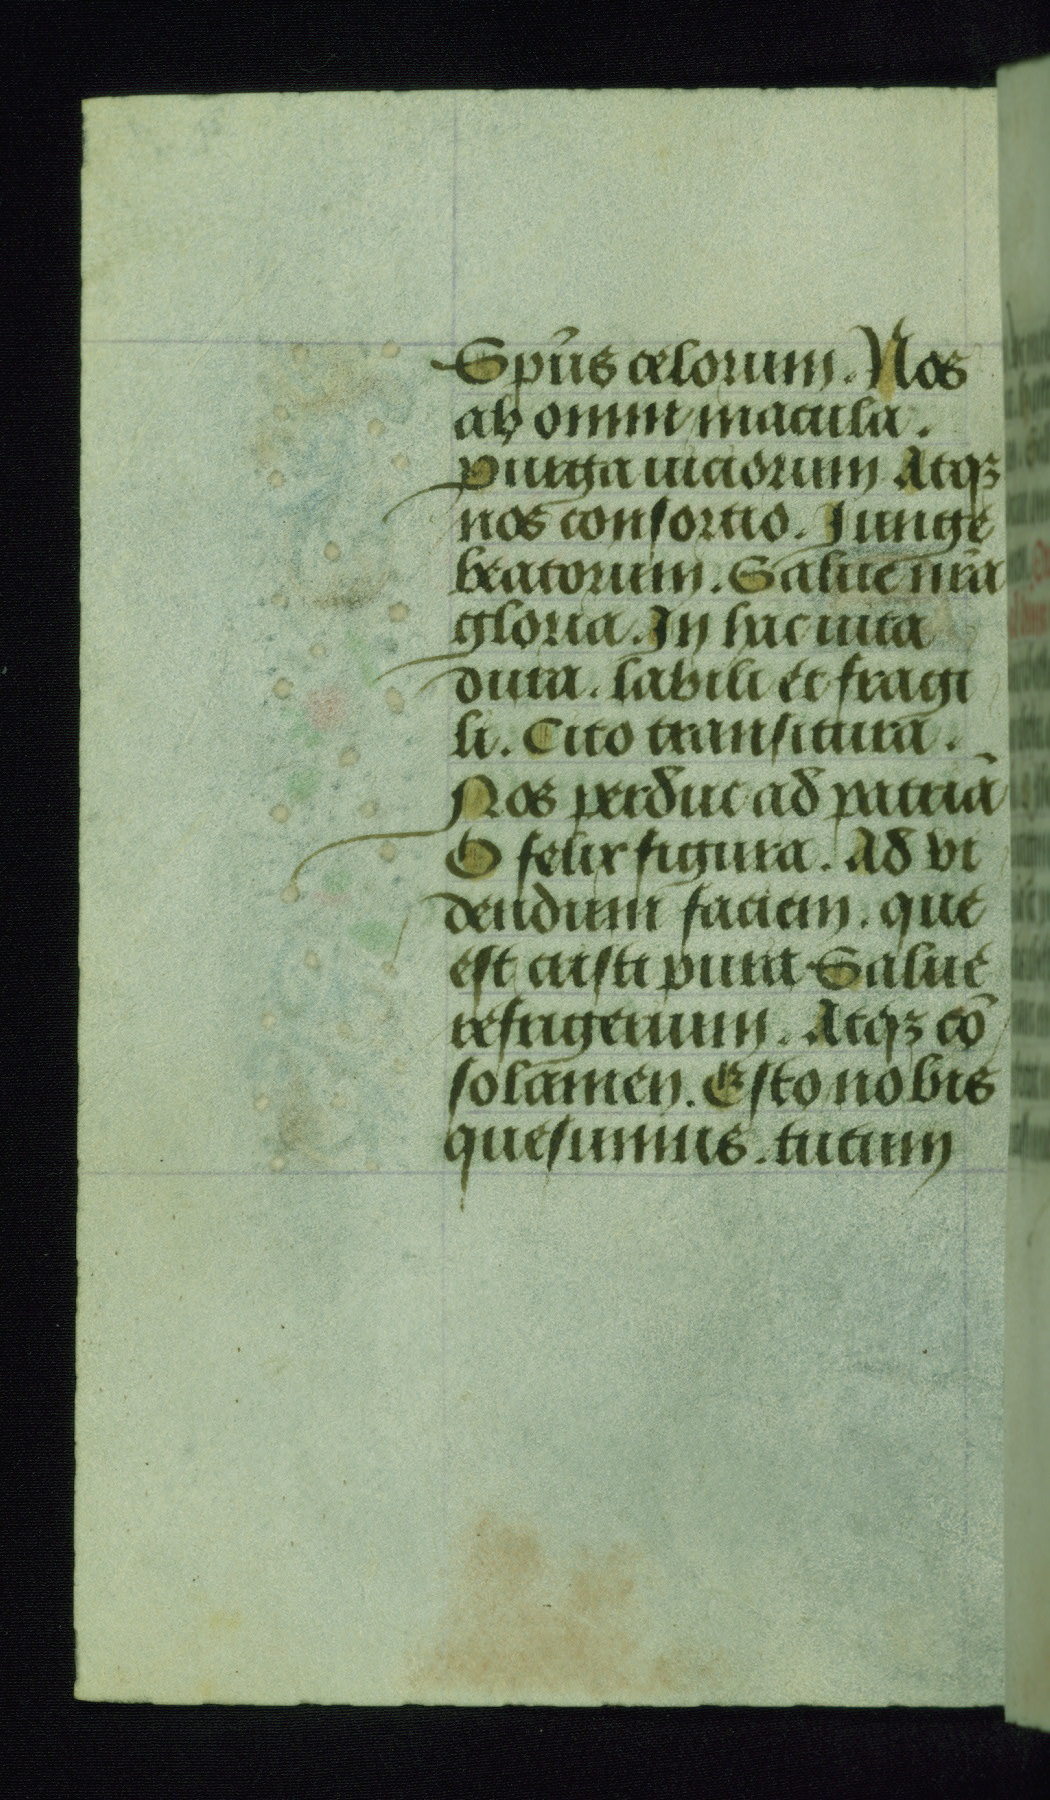 Spūs celorum. Nos
ab omni macula.
purga uiciorum Atqꝫ
nos consortio. Junge
beatorum. Salue nr̄a
gloria. In hac uita
dura. labili et fragi
li. Cito transitura.
Nos perduc ad patriā
O felix figura. Ad vi
dendum faciem. que
est cristi pura Salue
refrigerium. Atqꝫ cō
solamen. Esto nobis
quesumus. tutum